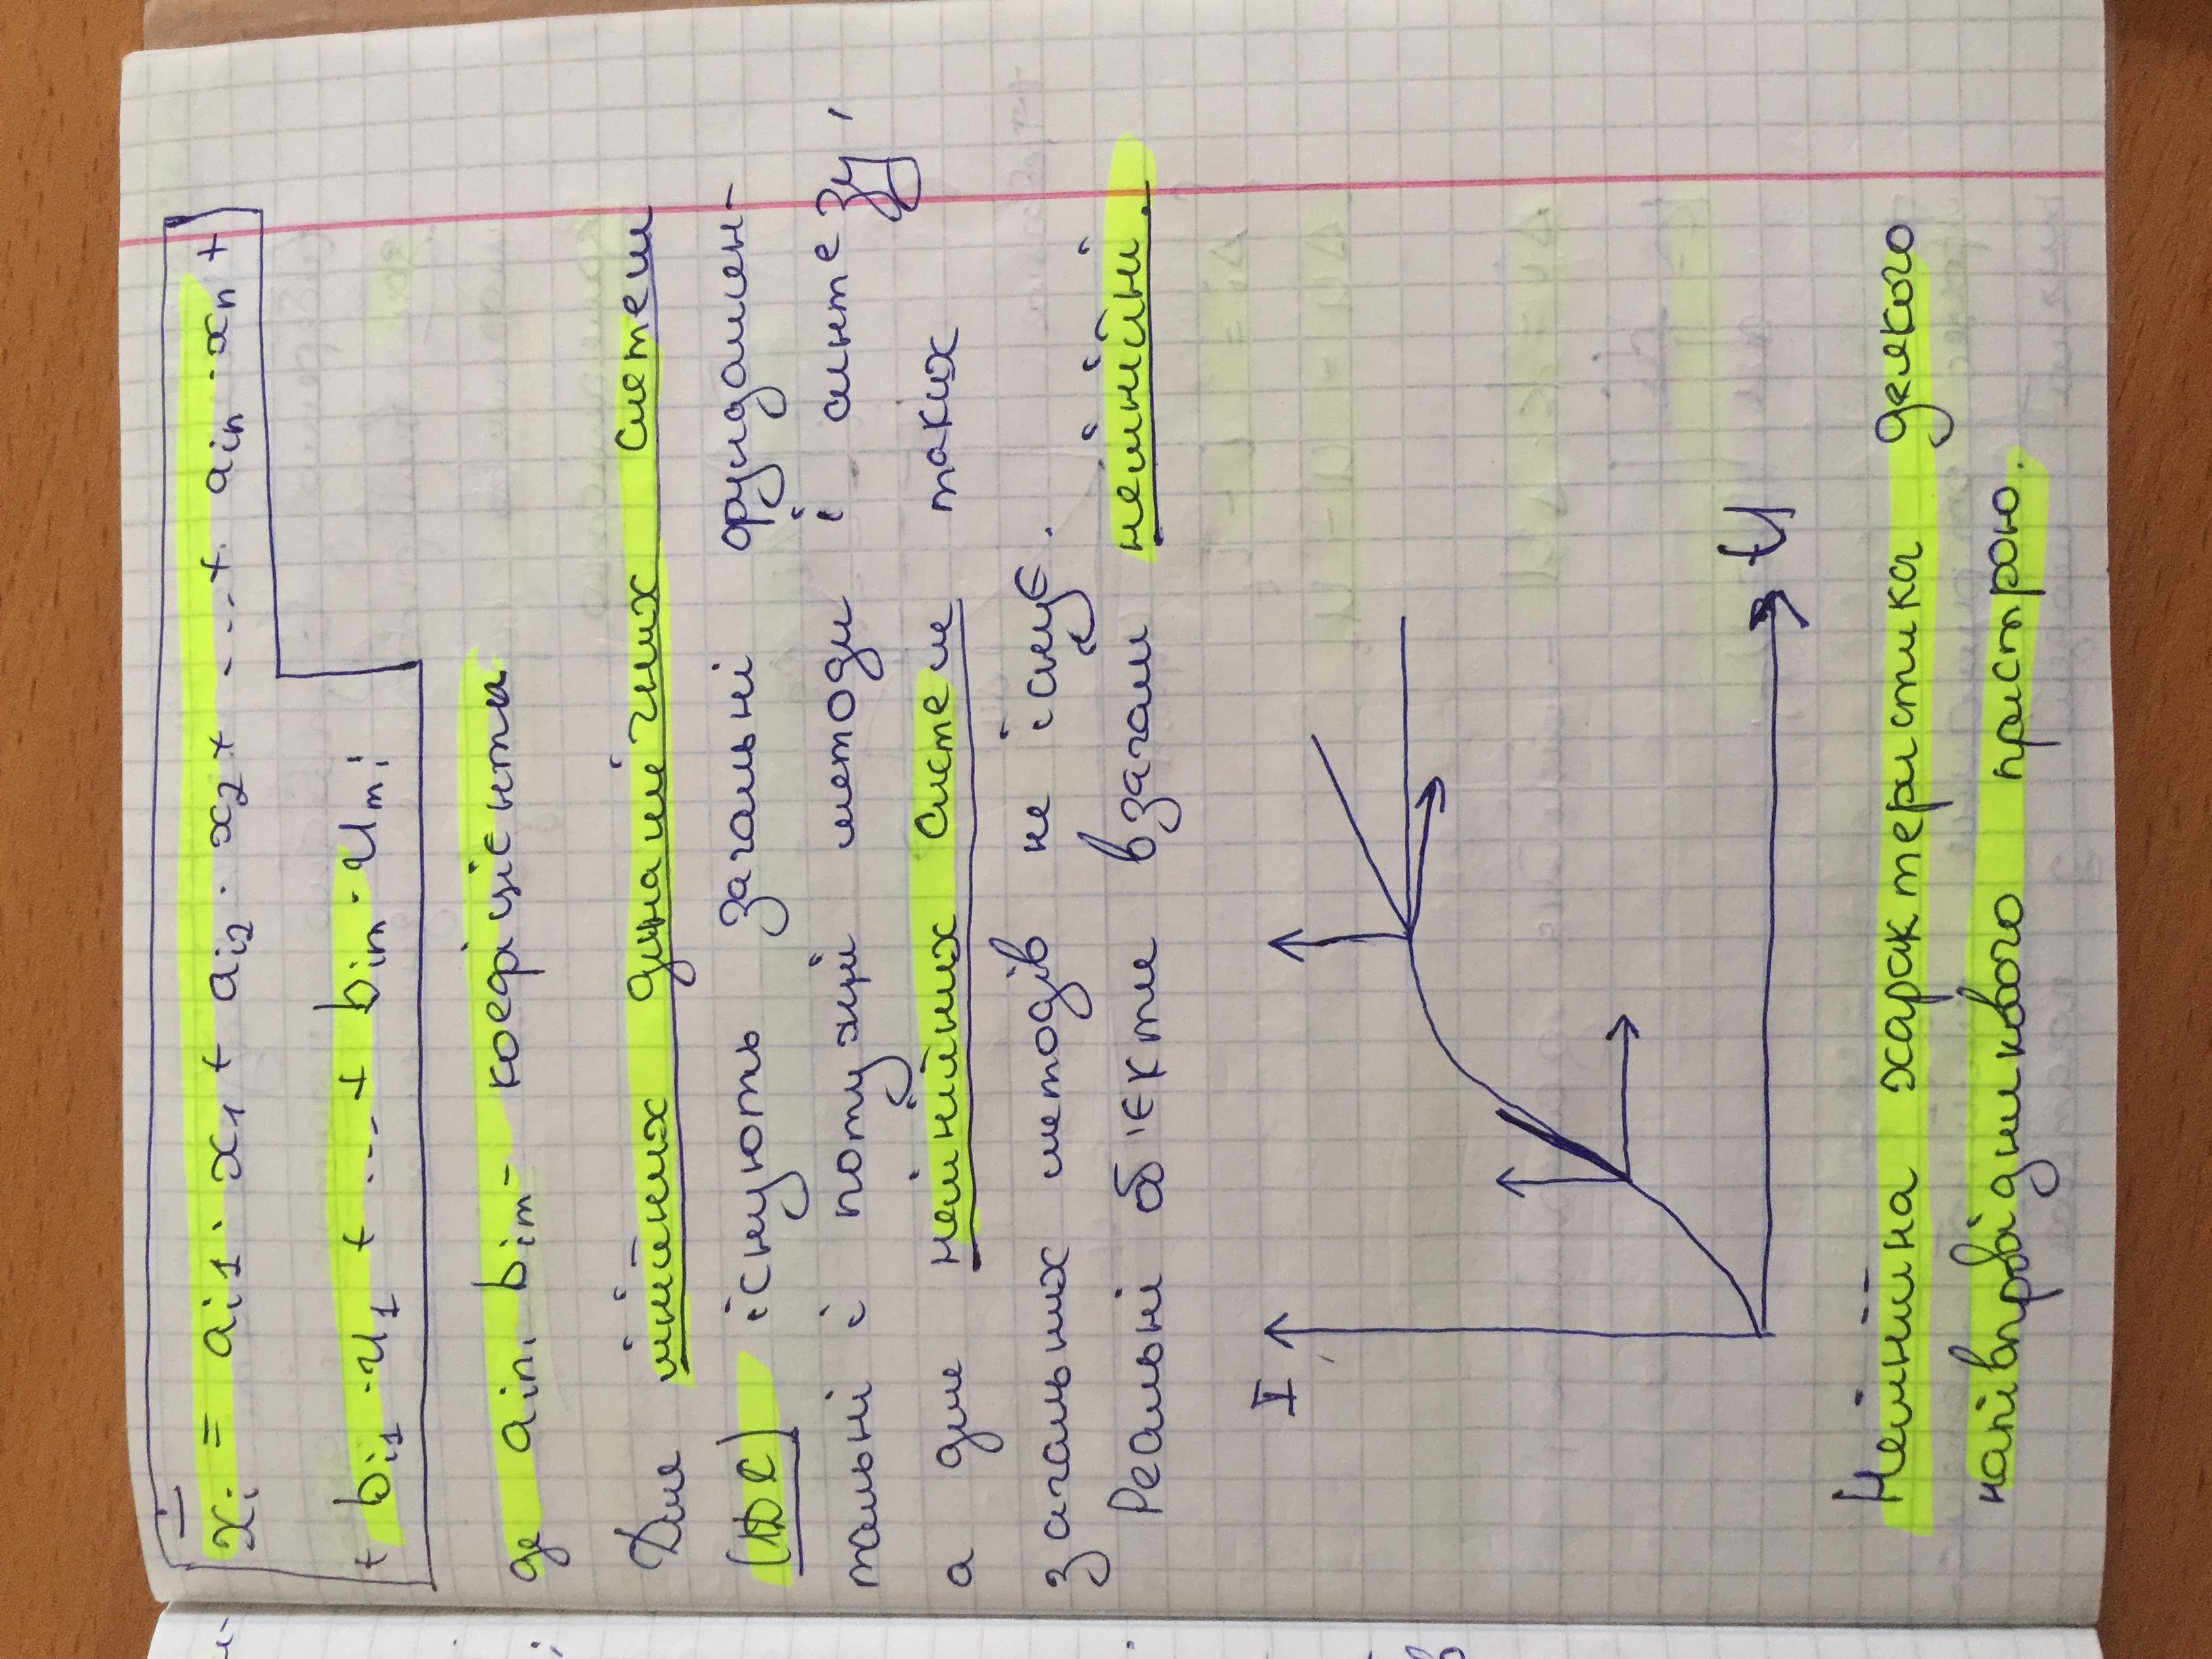 ẋi = ai1 · x1 + ai2 · x2 + ... + ain · xn +
+ bi1 · u1 + ... + bim · um;
де ain, bim - коефіцієнти
Для лінійних динамічних систем
(ЛДС) існують загальні фундамен-
тальні і потужні методи і синтезу,
а для нелінійних систем таких
загальних методів не існує.
Реальні об'єкти взагалі нелінійні.
I
U
Нелінійна характеристика деякого
напівпровідникового пристрою.